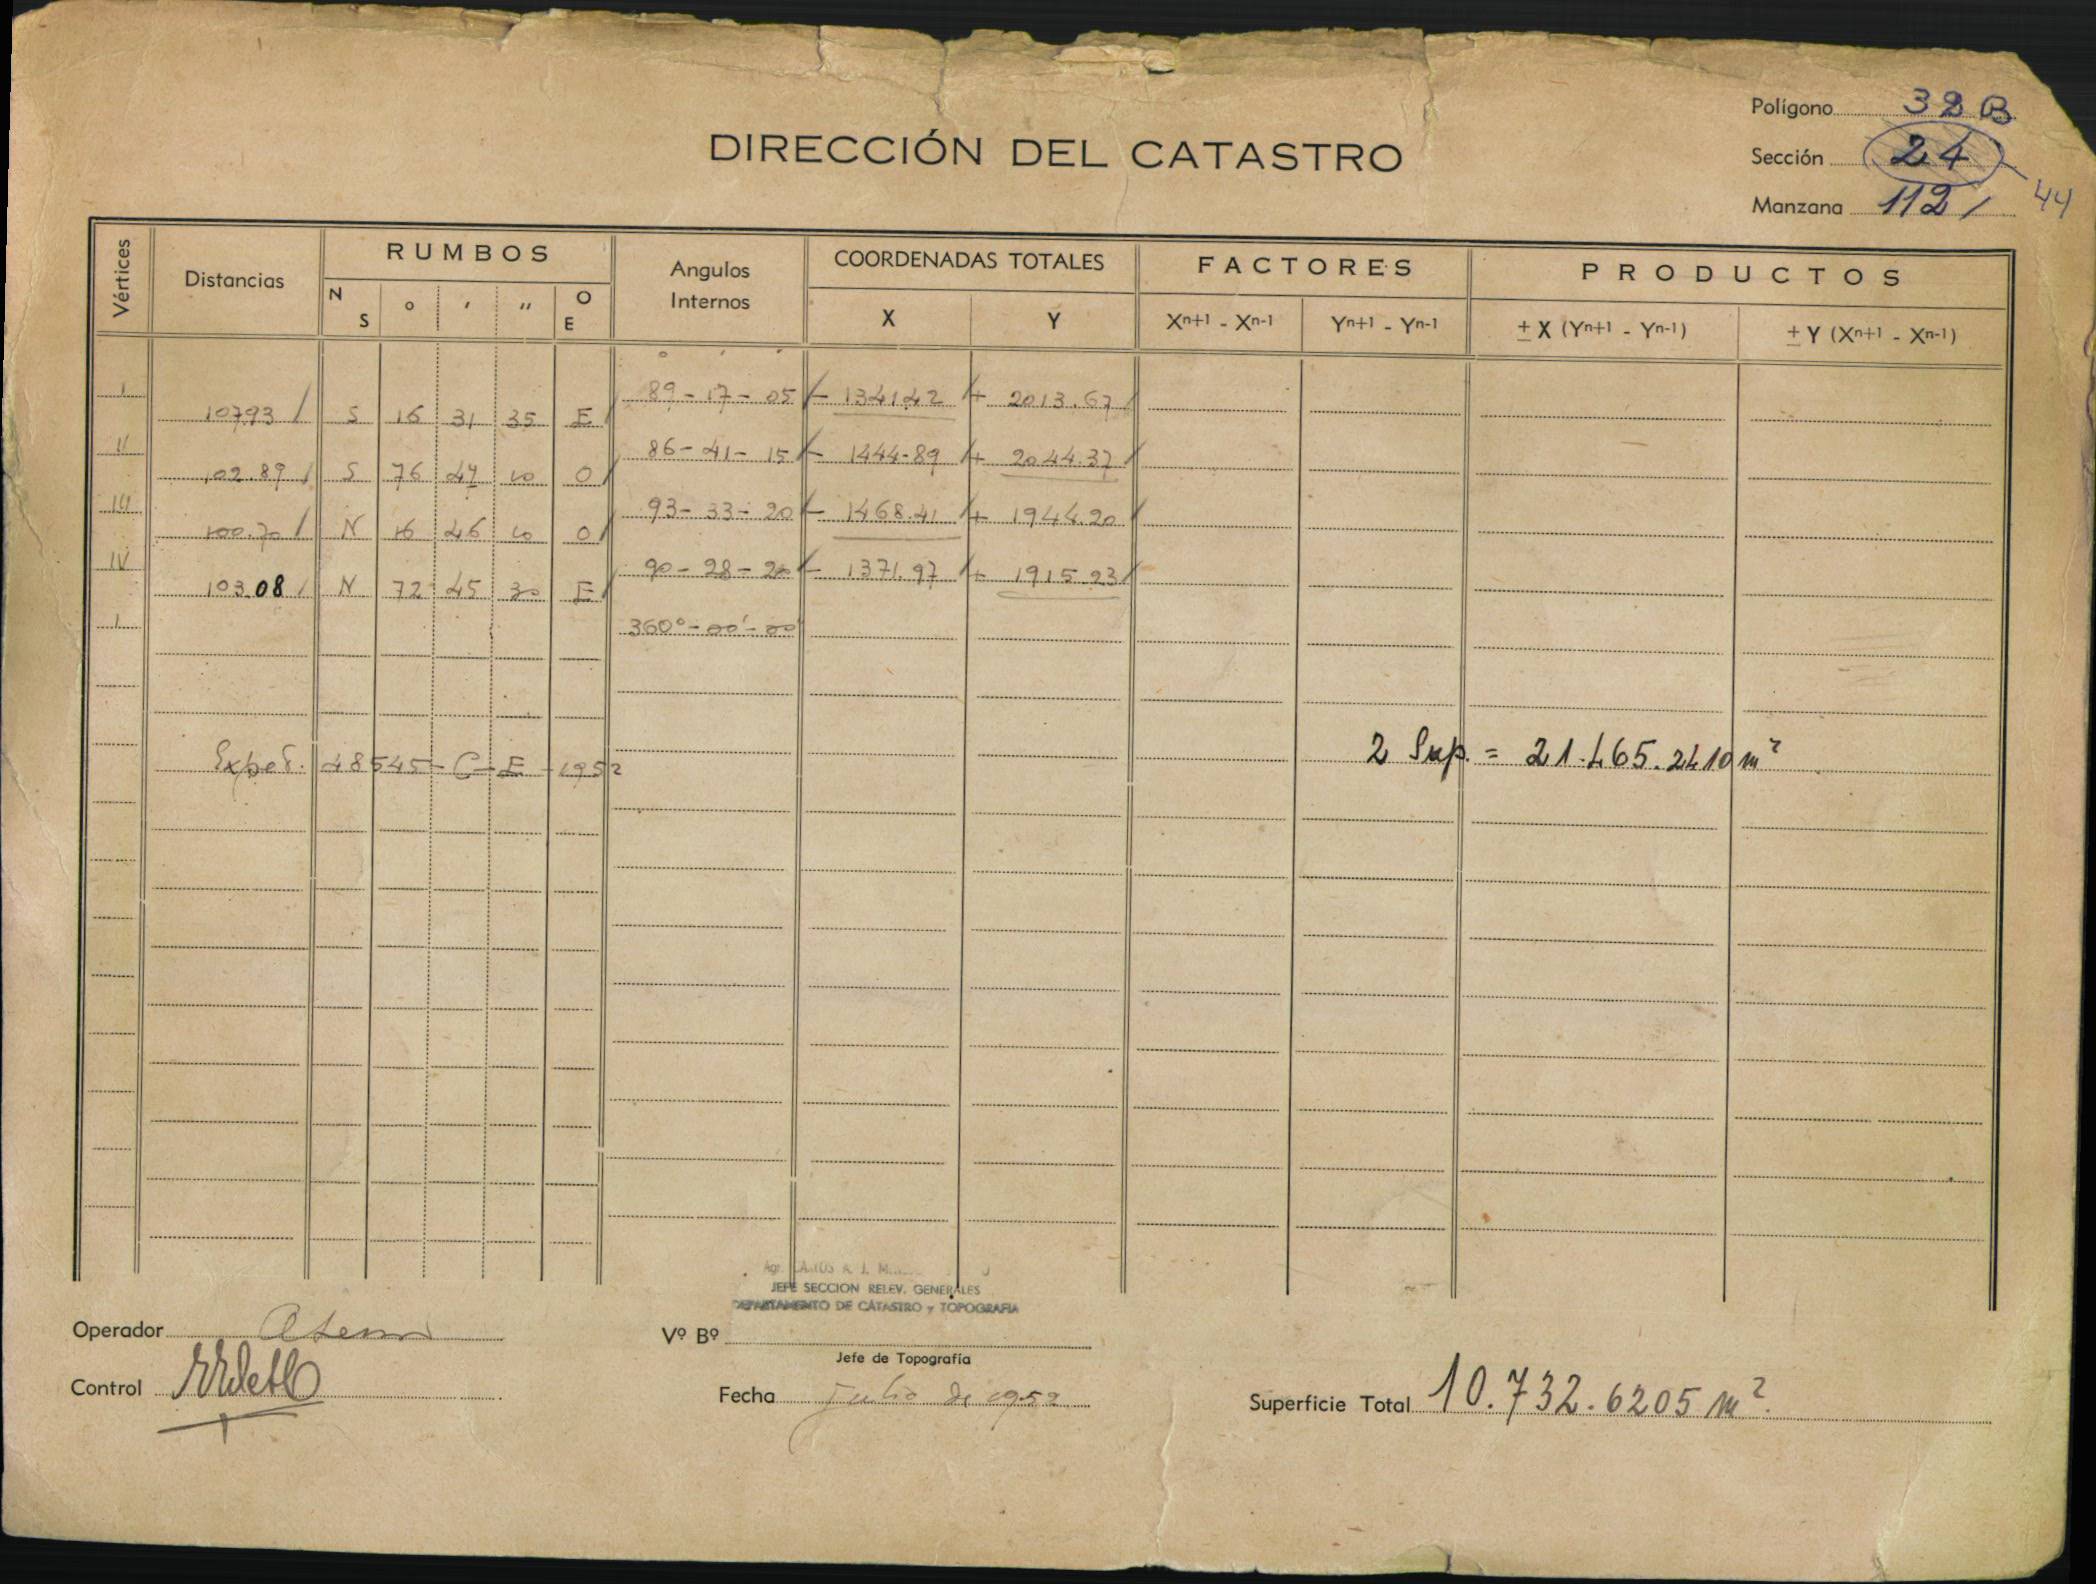 Polígono 32 B
DIRECCIÓN DEL CATASTRO
Sección 24
44
Manzana 112
Vértices
Distancias
RUMBOS
N S
°
'
"
O E
Angulos Internos
COORDENADAS TOTALES
X
Y
FACTORES
Xn+1 - Xn-1
Yn+1 - Yn-1
PRODUCTOS
± X (Yn+1 - Yn-1)
± Y (Xn+1 - Xn-1)
° ' "
I 89-17-05 - 1341.42 + 2013.67
107.93 S 16 31 35 E
II 86-41-15 - 1444.89 + 2044.37
102.89 S 76 47 10 O
III 93-33-20 - 1468.41 + 1944.20
100.70 N 16 46 10 O
IV 90-28-20 - 1371.97 + 1915.23
103.08 N 72 45 30 E
I 360°-00'-00"
Exped. 48545-C-E-1952
2 Sup. = 21.465.2410 m²
JEFE SECCION RELEV. GENERALES
DEPARTAMENTO DE CATASTRO y TOPOGRAFIA
Operador
Vº Bº
Jefe de Topografía
Control
Fecha Julio de 1952
Superficie Total 10.732.6205 m²